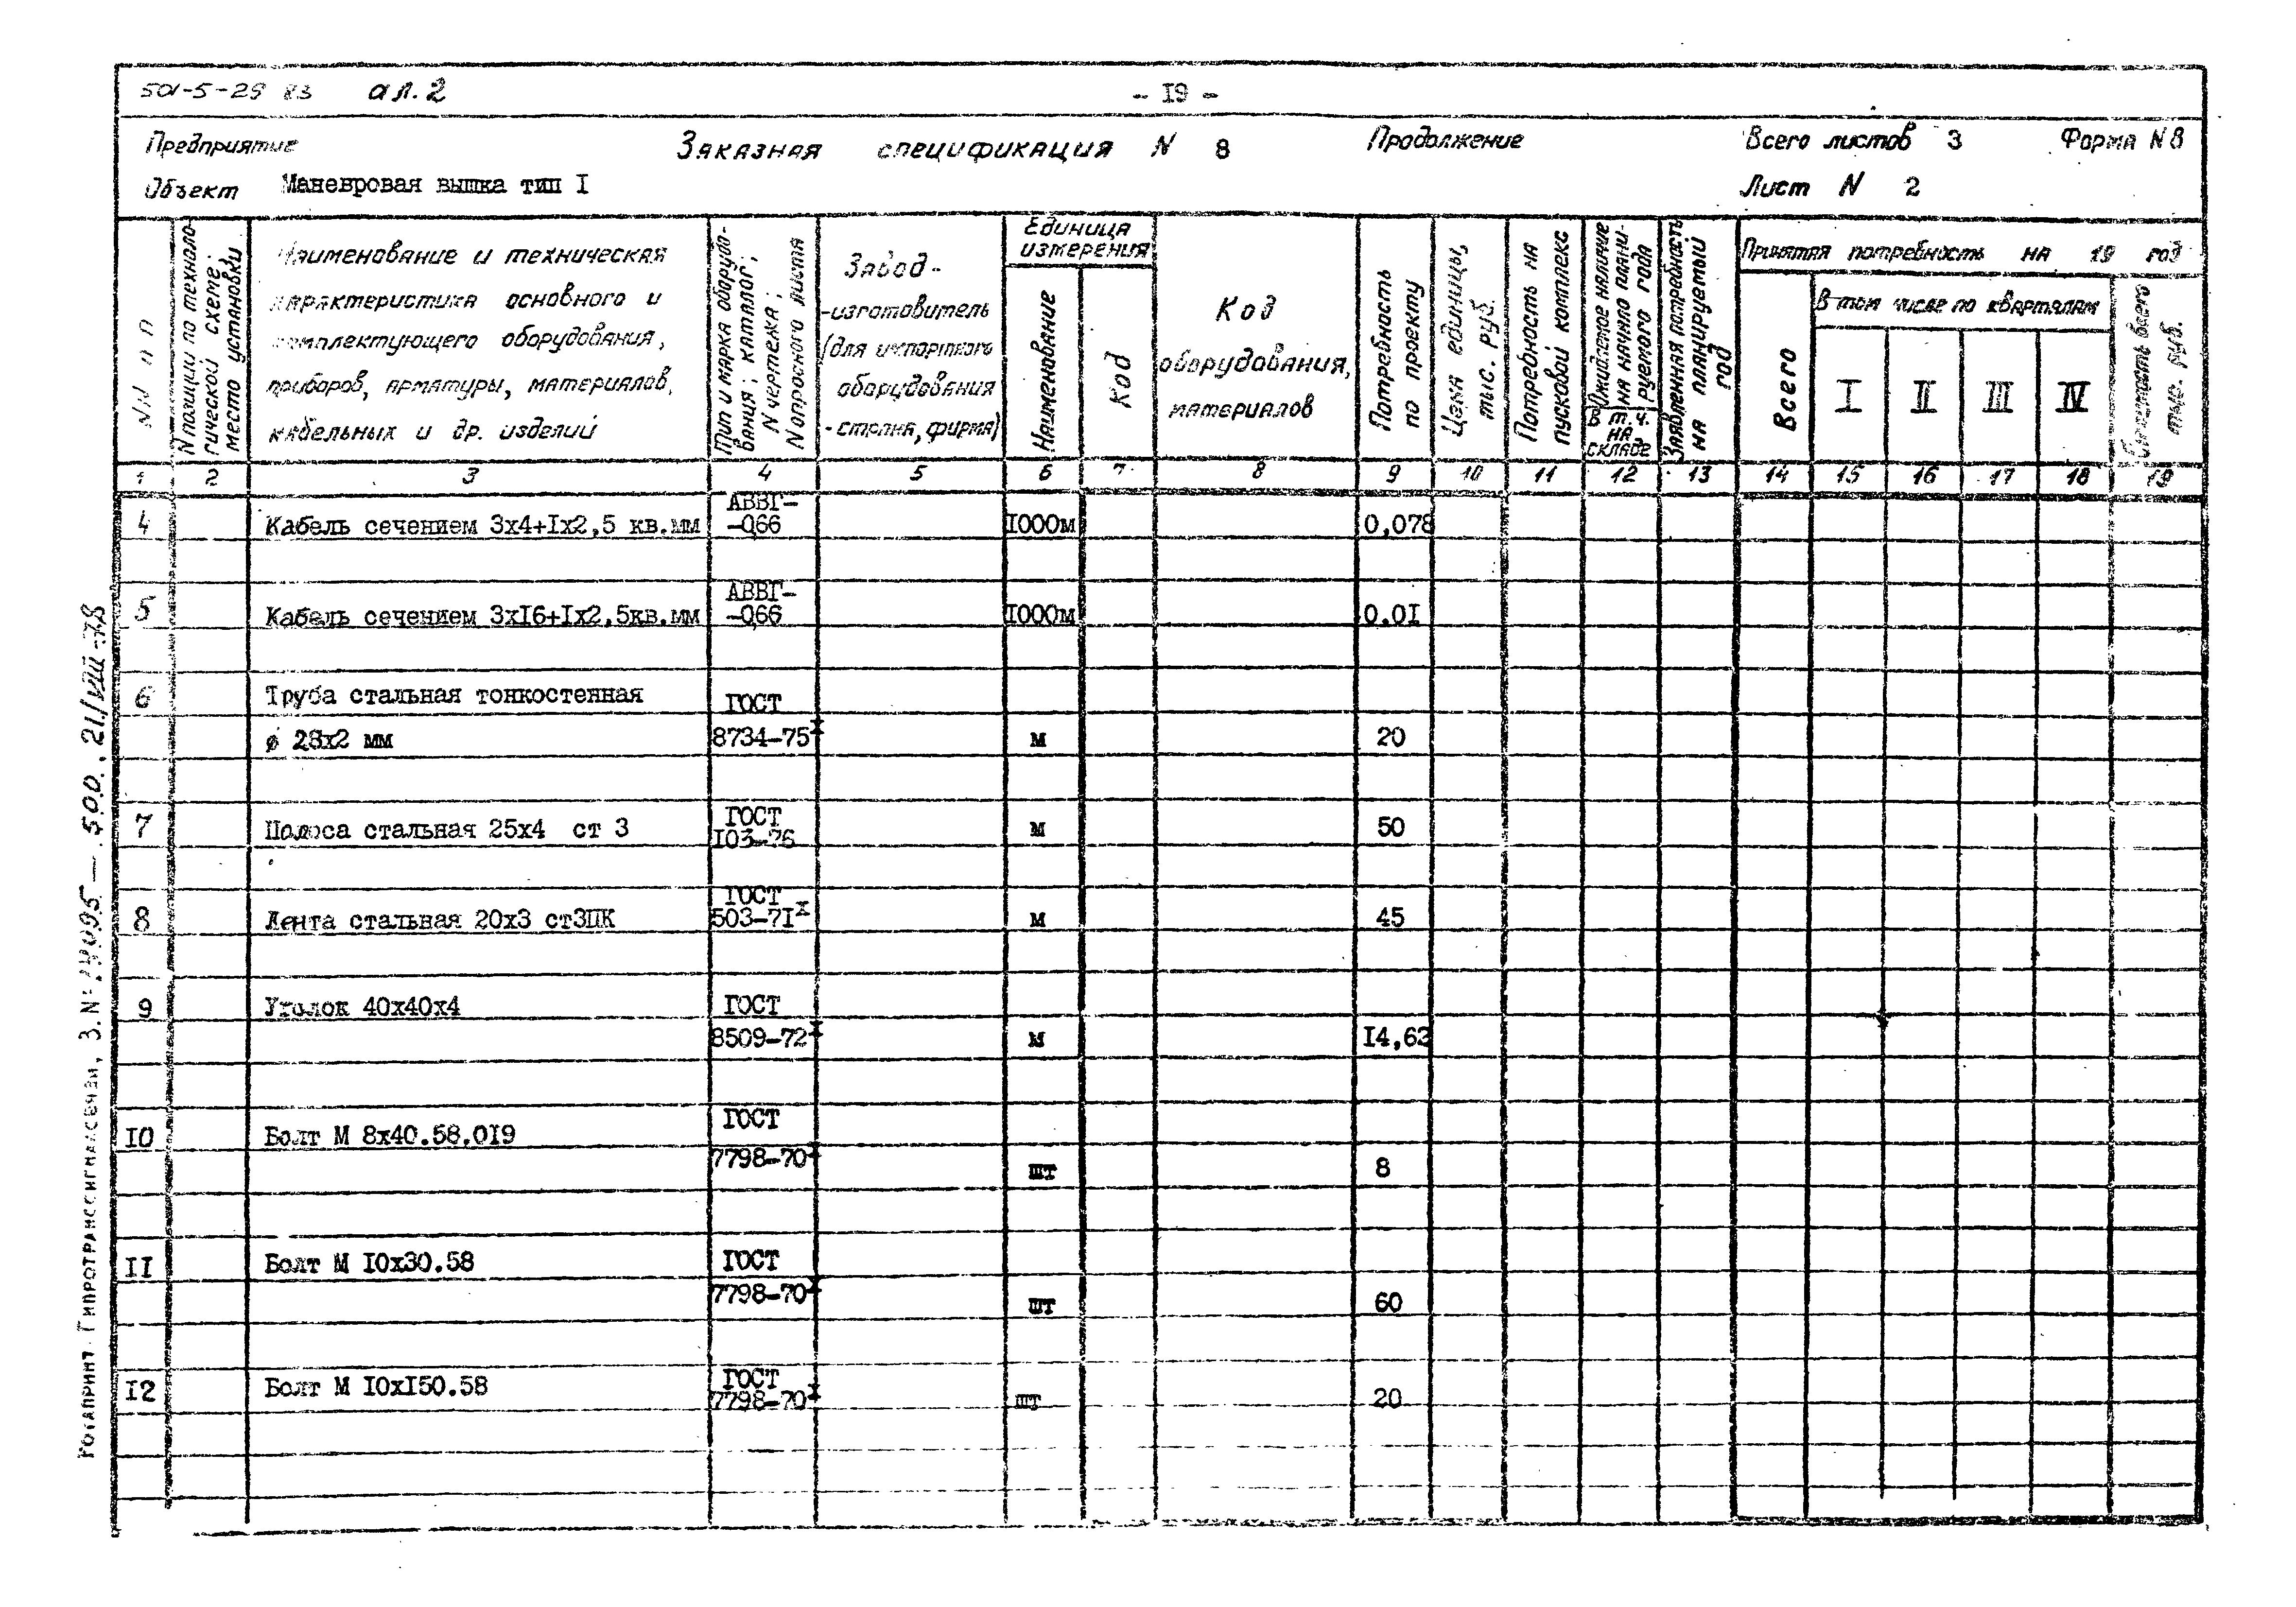 501-5-29 83 ал.2 - 19 -
Предприятие Заказная спецификация N 8 Продолжение Всего листов 3 Форма N 8
Объект Маневровая вышка тип I Лист N 2
NN п п
N позиции по техноло-
гической схеме;
место установки
Наименование и техническая
характеристика основного и
комплектующего оборудования,
приборов, арматуры, материалов,
кабельных и др. изделий
Тип и марка оборудо-
вания; каталог;
N чертежа;
N опросного листа
Завод-
-изготовитель
(для импортного
оборудования
-страна, фирма)
Единица
измерения
Наименование
Код
Код
оборудования,
материалов
Потребность
по проекту
Цена единицы,
тыс. руб.
Потребность на
пусковой комплекс
Ожидаемое наличие
на начало плани-
руемого года
В т.ч.
на
складе
Заявленная потребность
на планируемый
год
Принятая потребность на 19 год
Всего
В том числе по кварталам
I II III IV
Стоимость всего
тыс. руб.
1 2 3 4 5 6 7 8 9 10 11 12 13 14 15 16 17 18 19
АВВГ-
4 Кабель сечением 3х4+1х2,5 кв.мм -0,66 1000м 0,078
АВВГ-
5 Кабель сечением 3х16+1х2,5кв.мм -0,66 1000м 0.01
6 Труба стальная тонкостенная ГОСТ
ø 28х2 мм 8734-75х м 20
ГОСТ
7 Полоса стальная 25х4 ст 3 103-76 м 50
ГОСТ
8 Лента стальная 20х3 ст3ПК 503-71х м 45
9 Уголок 40х40х4 ГОСТ
8509-72х м 14,63
ГОСТ
10 Болт М 8х40.58.019
7798-70х шт 8
11 Болт М 10х30.58 ГОСТ
7798-70х шт 60
ГОСТ
12 Болт М 10х150.58 7798-70х шт 20
Ротапринт. Гипротранссигналсвязи, З. №